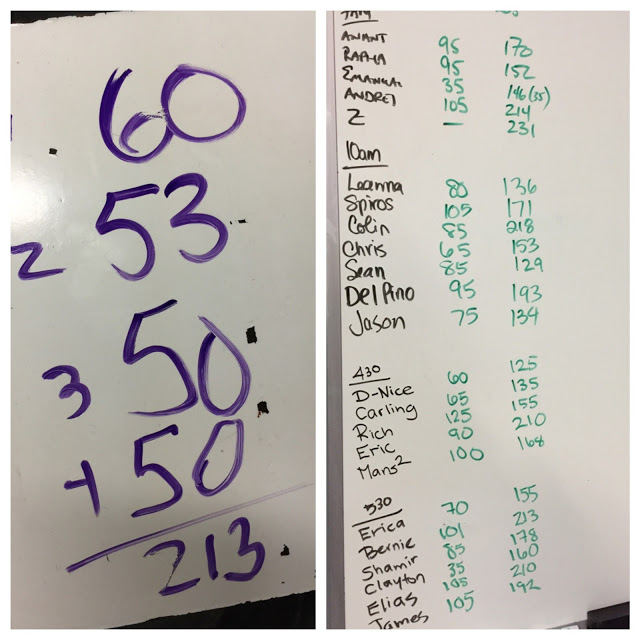 60
2 53
3 50
+ 50
213
ANANT 95 170
RAPHA 95 152
EMANUAL 35 146(35)
ANDREI 105 214
Z — 231
10am
Leanna 80 136
Spiros 105 171
Colin 85 218
Chris 65 153
Sean 85 129
Del Pino 95 193
Jason 75 134
430
D-Nice 60 125
Carling 65 135
Rich 125 155
Eric 90 210
Mans² 100 168
530
Erica 70 155
Bernie 101 213
Shamir 85 178
Clayton 35 160
Elias 105 210
James 105 192